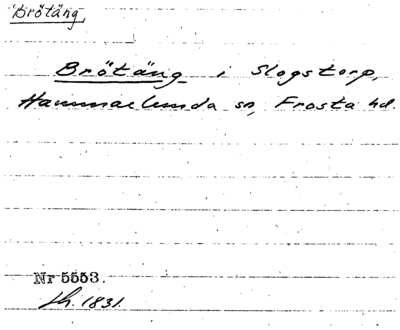 Brötäng
Brötäng i Slogstorp,
Hammarlunda sn, Frosta hd.
Nr 5553.
Lh. 1831.